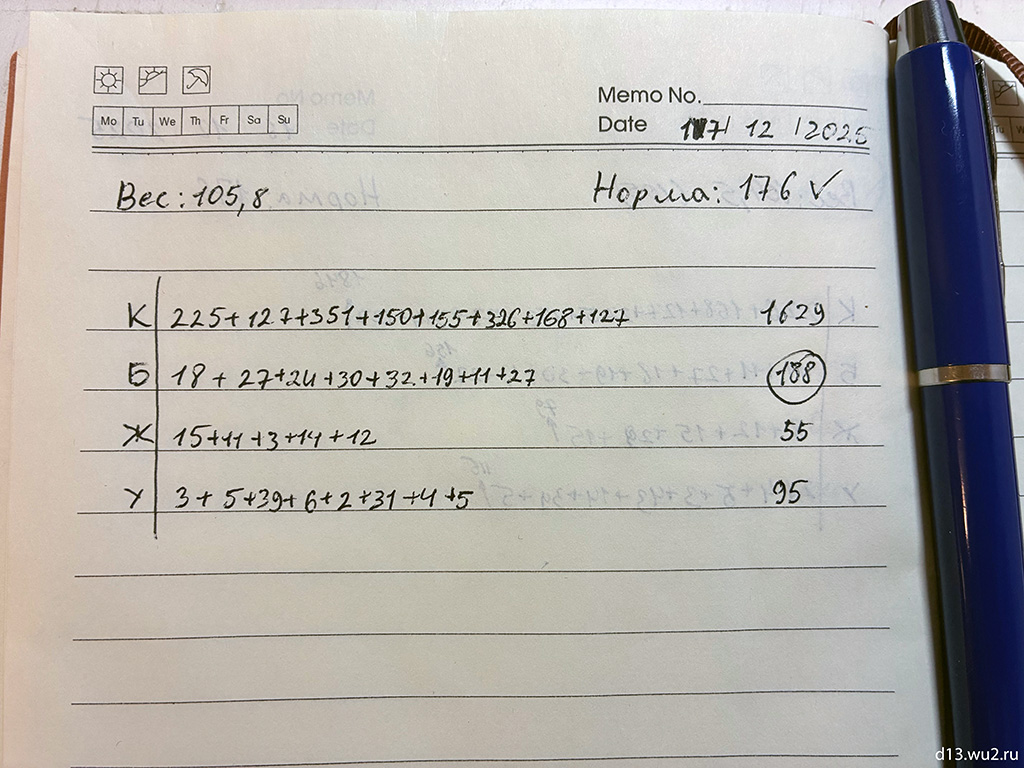 Memo No.
Mo Tu We Th Fr Sa Su
Date 17/ 12 /2025
Вес: 105,8 Норма: 176 ✓
К 225+127+351+150+155+326+168+127 1629
Б 18+27+24+30+32+19+11+27 188
Ж 15+11+3+14+12 55
У 3+5+39+6+2+31+4+5 95
d13.wu2.ru